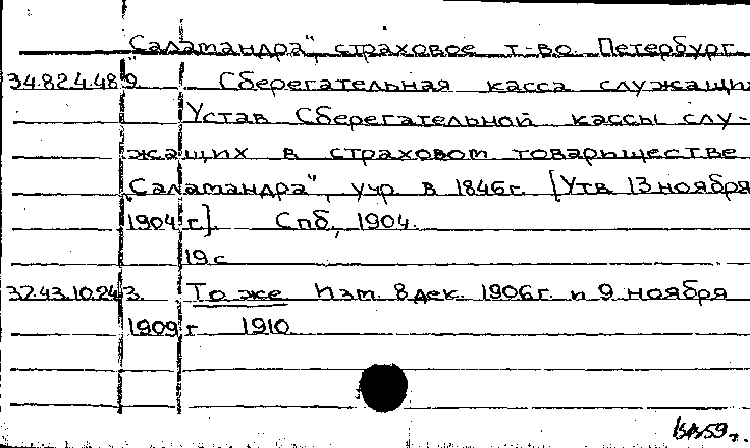 "Саламандра", страховое т-во. Петербург.
34.82.4.489. Сберегательная касса служащих
Устав Сберегательной кассы слу-
жащих в страховом товариществе
"Саламандра", учр. в 1846 г. [Утв. 13 ноября
1904 г.]. Спб., 1904.
19 с
37.43.10.243. То же Изм. 8 дек. 1906 г. и 9 ноября
1909 г 1910